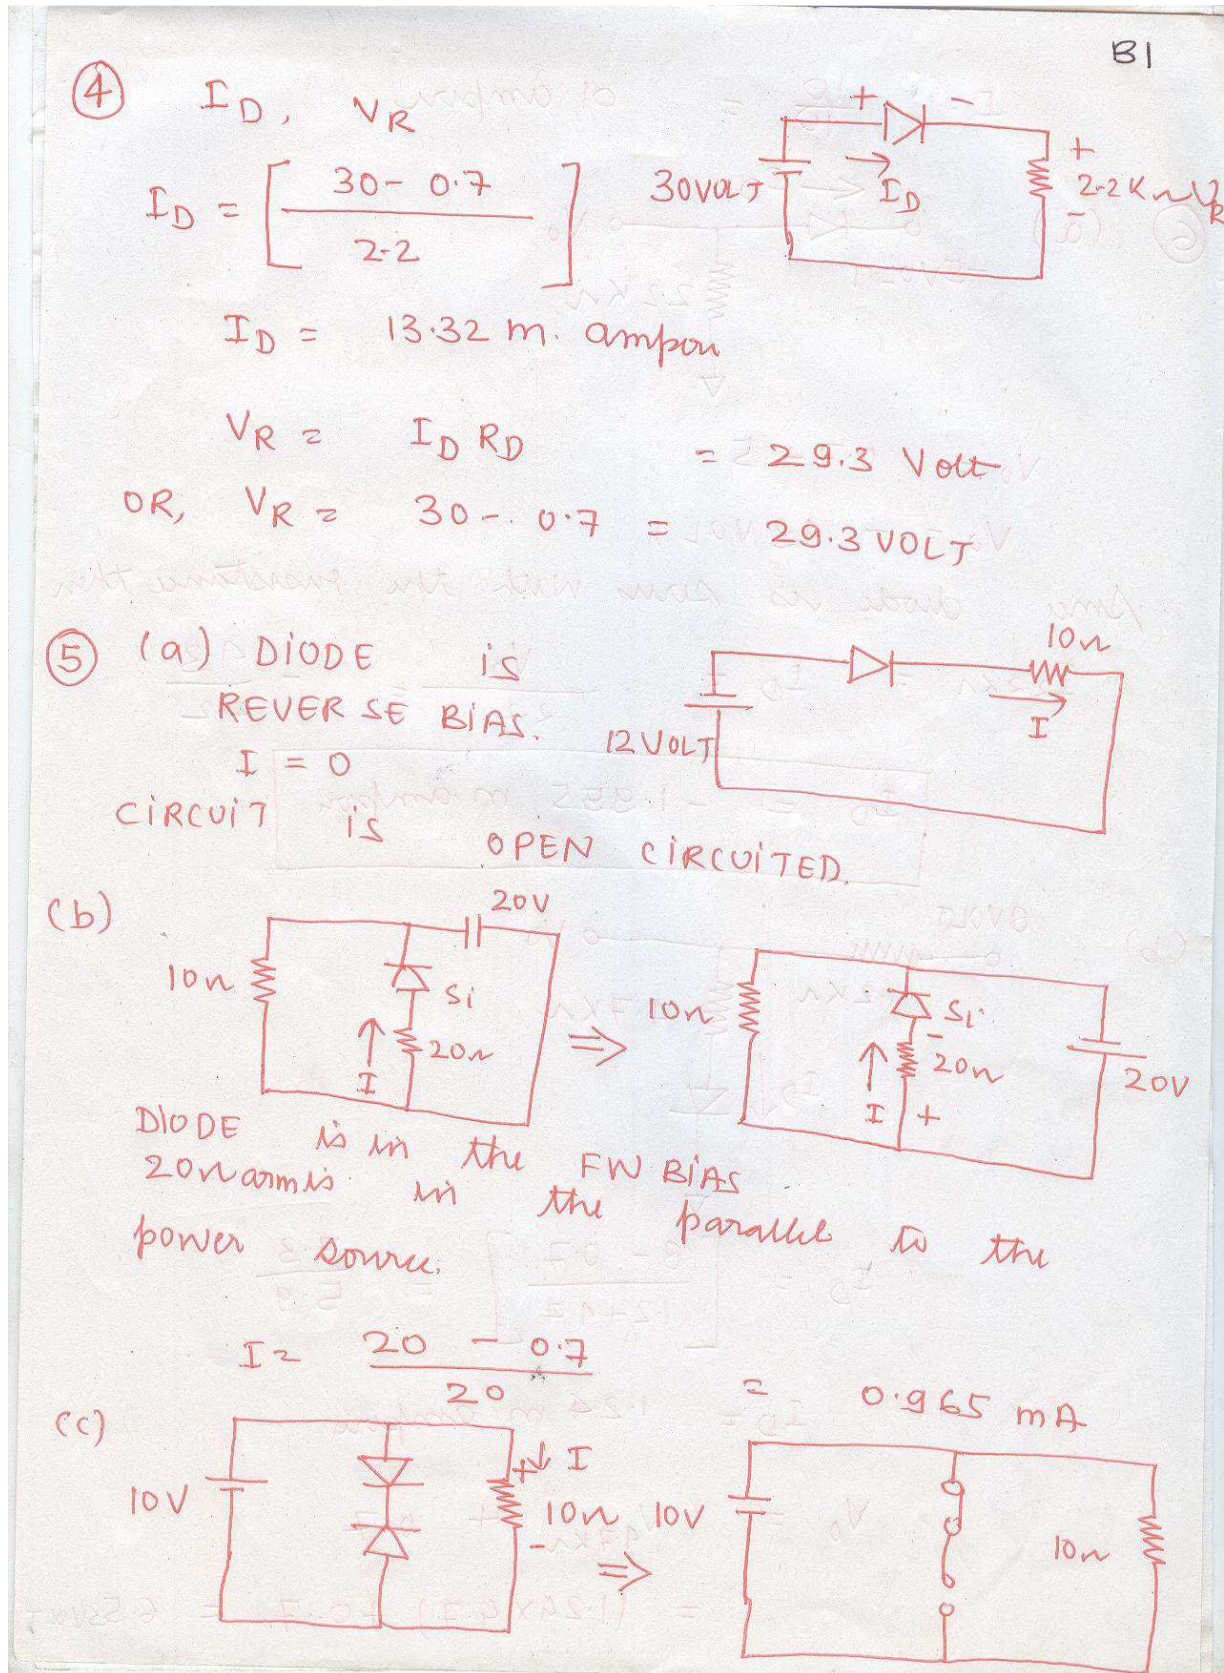 B1
④ I_D, V_R
+ -
30 VOLT I_D + 2.2KΩ V_R -
I_D = [ 30 - 0.7 / 2.2 ]
I_D = 13.32 m. ampere
V_R = I_D R_D = 29.3 Volt
OR, V_R = 30 - 0.7 = 29.3 VOLT
⑤ (a) DIODE is
REVERSE BIAS.
I = 0
CIRCUIT is OPEN CIRCUITED.
12 VOLT 10Ω I
(b)
20V
10Ω Si
I 20Ω
⇒
10Ω Si
- 20Ω
I +
20V
DIODE is in the FW BIAS
20Ω arm is in the parallel to the
power source.
I = 20 - 0.7 / 20 = 0.965 mA
(c)
10V + I
10Ω -
⇒
10V 10Ω